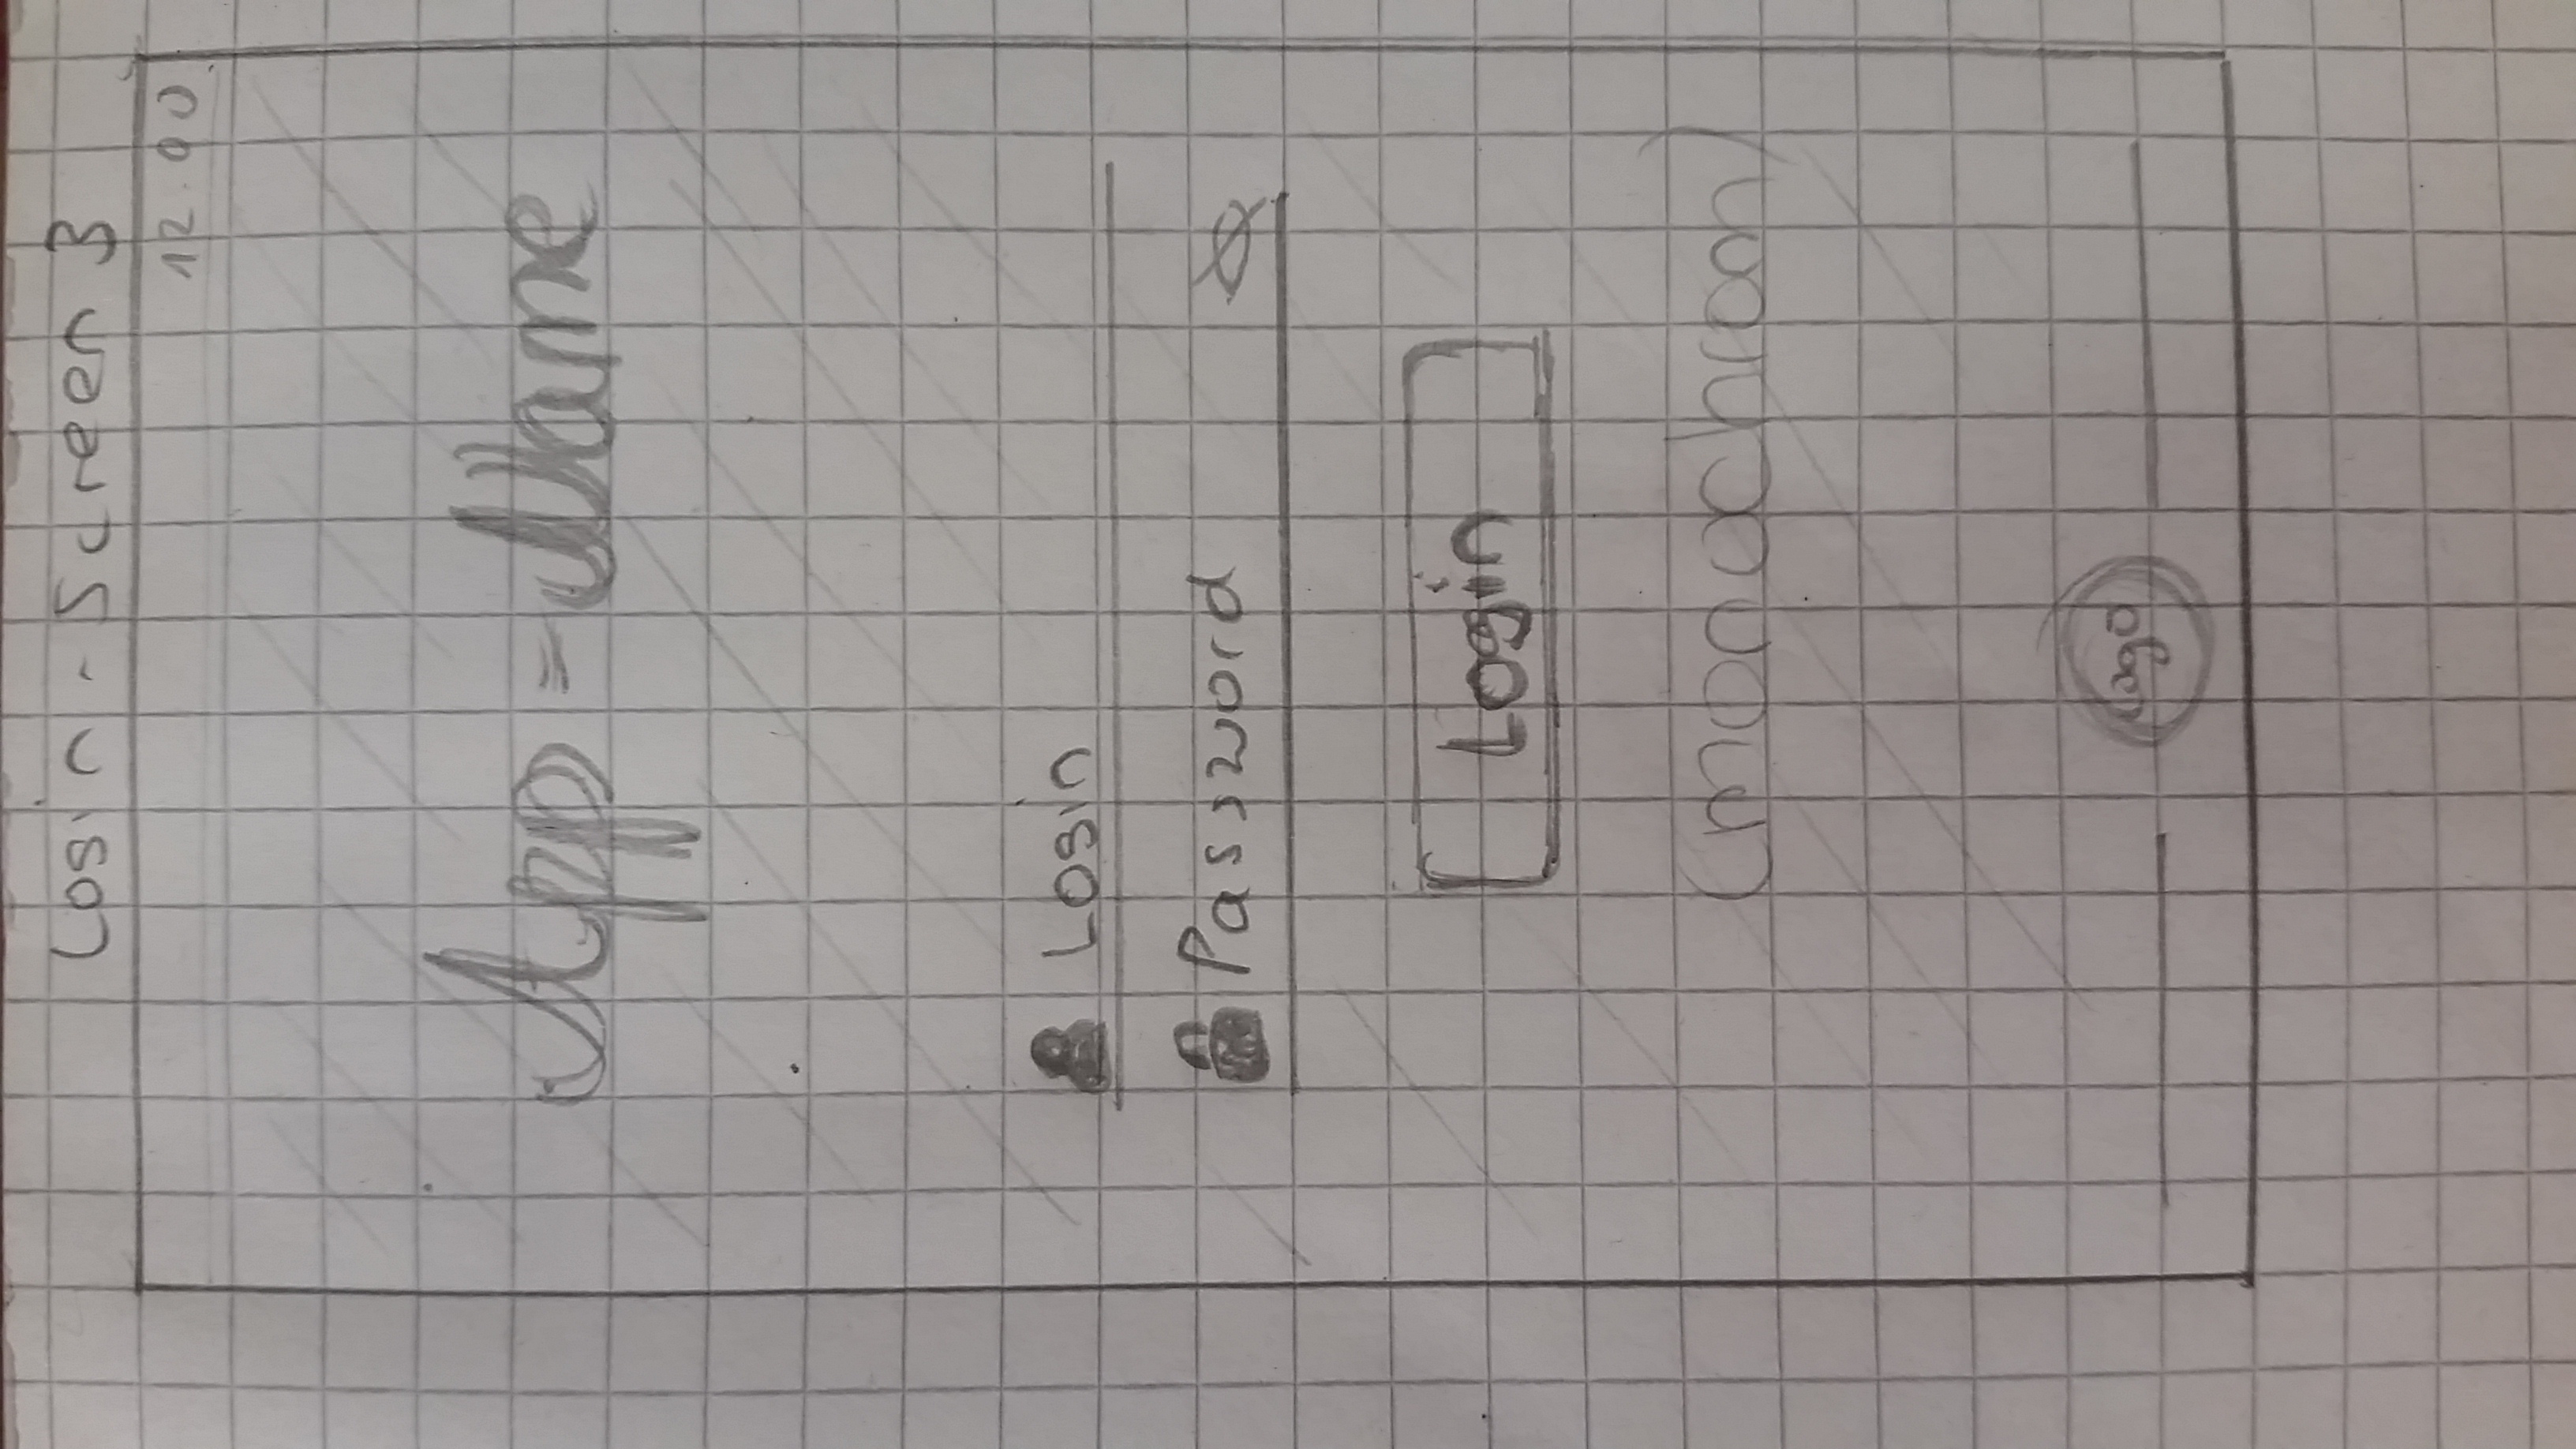 Login - Screen 3
12.00
App-Name
Login
Password
Login
(monochrom)
Logo